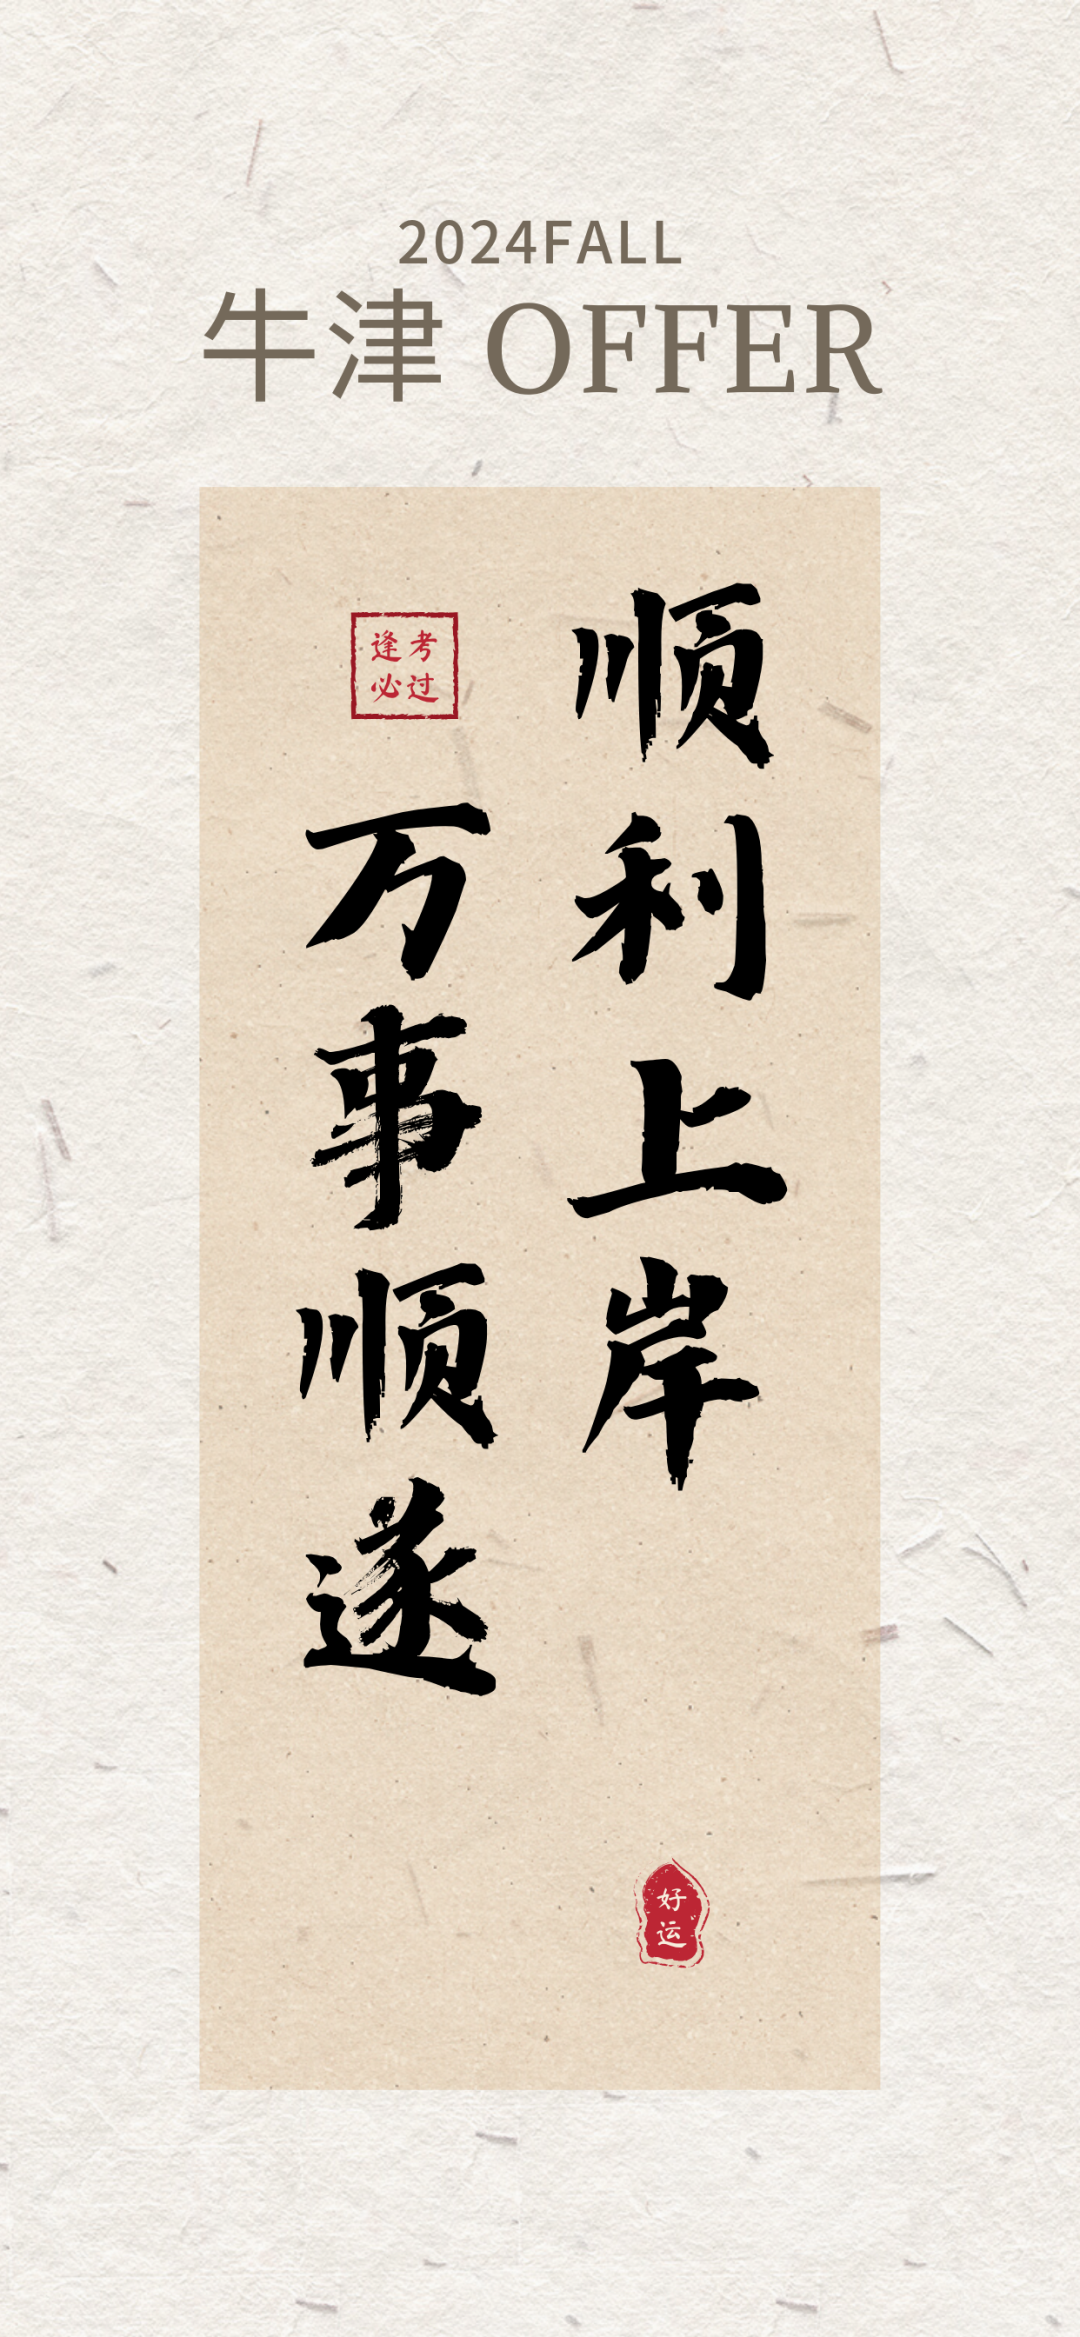 2024FALL
牛津 OFFER
顺利上岸
万事顺遂
逢考
必过
好运